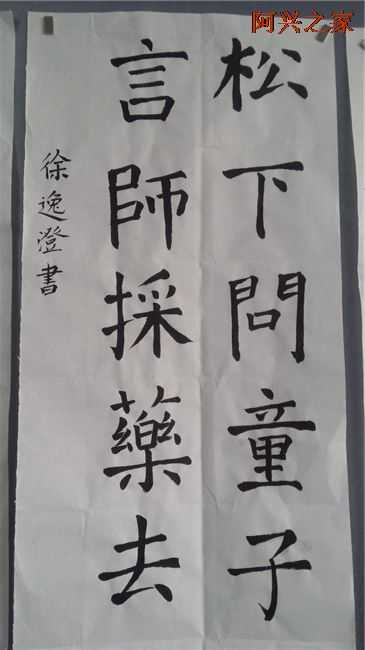 阿兴之家
松下問童子
言師採藥去
徐逸澄書